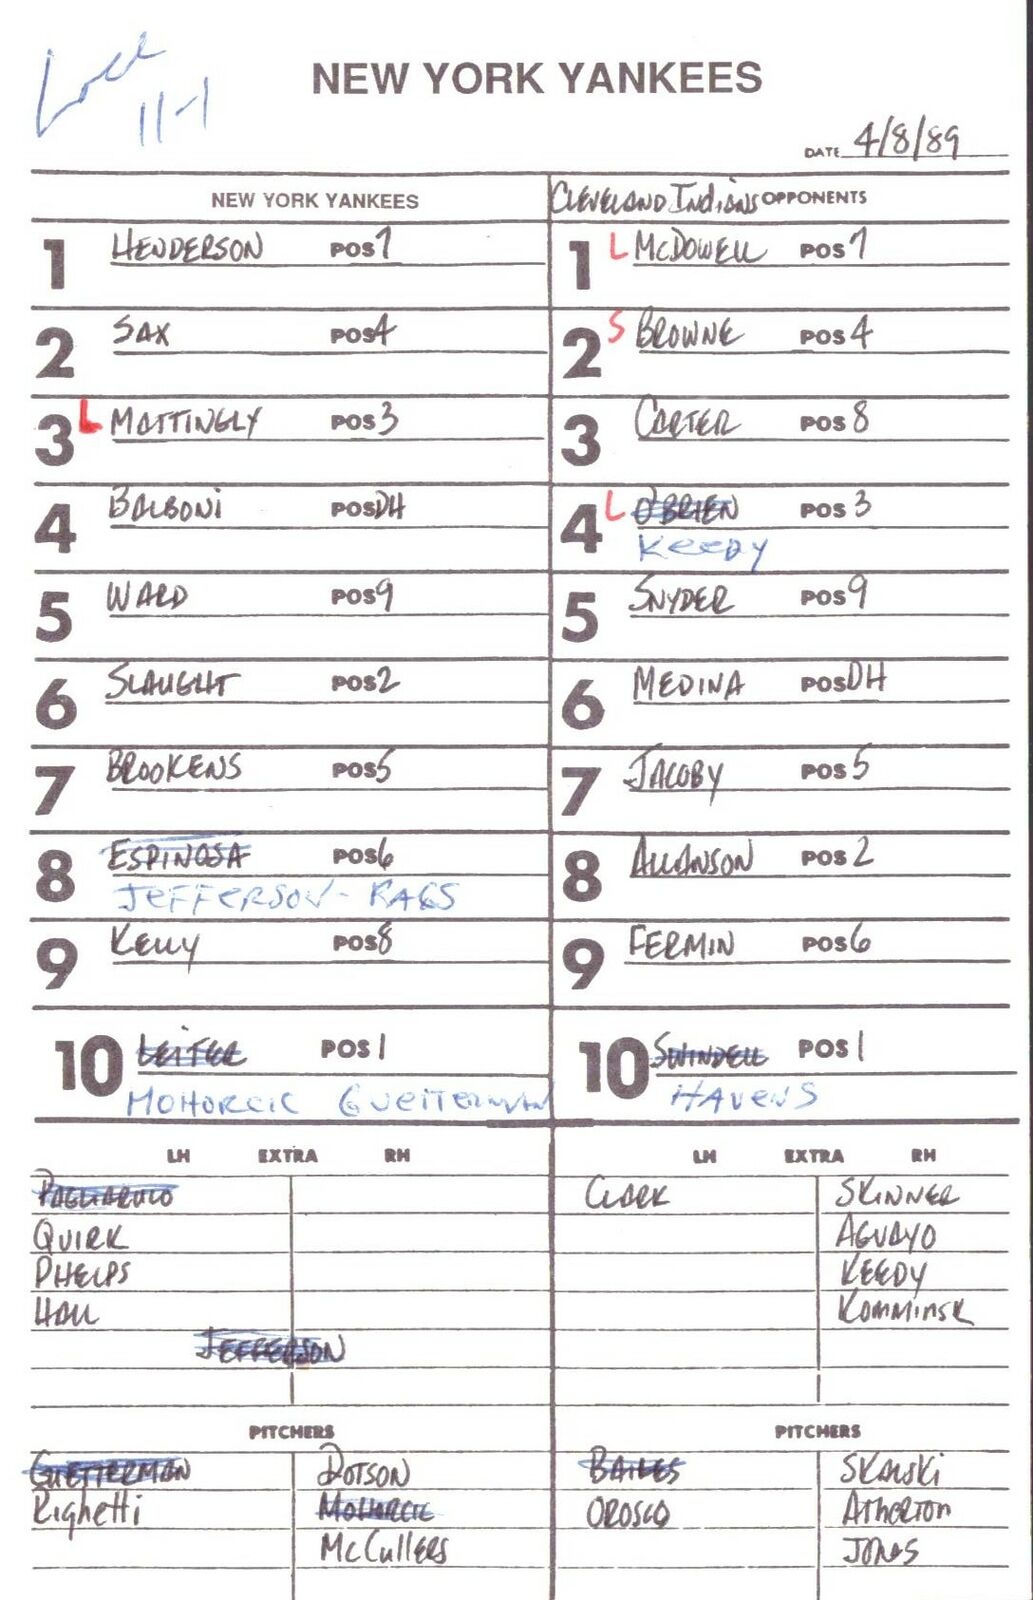 Loss
11-1
NEW YORK YANKEES
DATE 4/8/89
NEW YORK YANKEES
Cleveland Indians OPPONENTS
1 HENDERSON POS 7
1 L McDOWELL POS 7
2 SAX POS 4
2 S BROWNE POS 4
3 L MATTINGLY POS 3
3 CARTER POS 8
4 BALBONI POS DH
4 L O'BRIEN POS 3
KEEDY
5 WARD POS 9
5 SNYDER POS 9
6 SLAUGHT POS 2
6 MEDINA POS DH
7 BROOKENS POS 5
7 JACOBY POS 5
8 ESPINOSA POS 6
JEFFERSON - RAGS
8 ALLANSON POS 2
9 KELLY POS 8
9 FERMIN POS 6
10 LEITER POS 1
MOHORCIC GUETTERMAN
10 SWINDELL POS 1
HAVENS
LH EXTRA RH
LH EXTRA RH
PAGLIARULO
CLARK SKINNER
QUIRK
AGUAYO
PHELPS
KEEDY
HALL
KOMMINSK
JEFFERSON
PITCHERS
PITCHERS
GUETTERMAN DOTSON
BAILES SKALSKI
Righetti MOHORCIC
OROSCO Atherton
McCullers
JONES